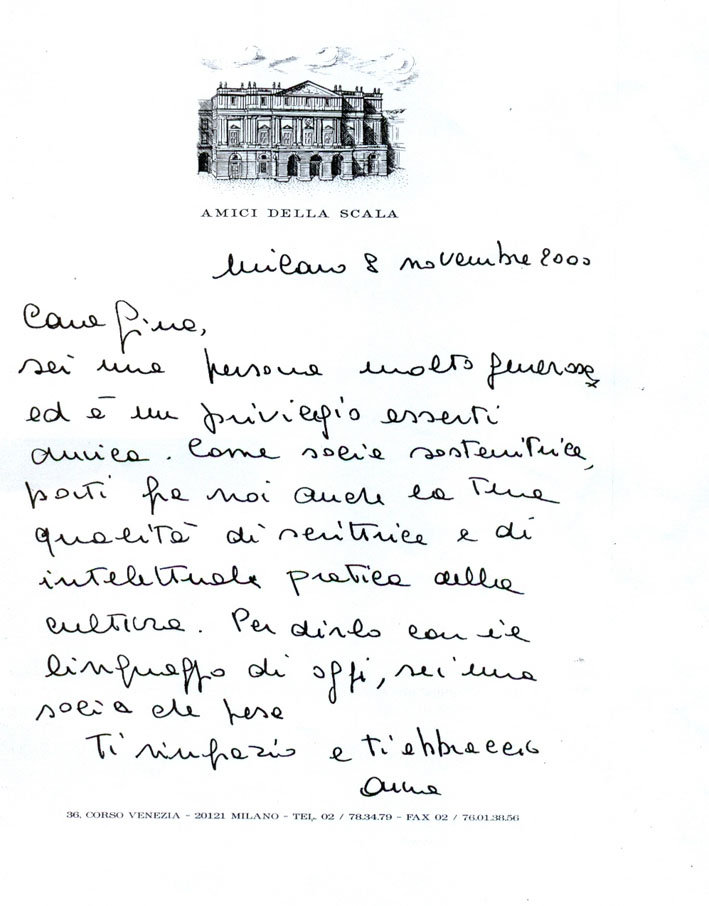 AMICI DELLA SCALA
Milano 8 novembre 2000
Cara Gina,
sei una persona molto generosa
ed è un privilegio esserti
amica. Come socia sostenitrice,
porti fra noi anche la Tua
qualità di scrittrice e di
intelettuale pratica della
cultura. Per dirlo con il
linguaggio di oggi, sei una
socia che pesa
Ti ringrazio e ti abbraccio
Anna
36, CORSO VENEZIA - 20121 MILANO - TEL. 02 / 78.34.79 - FAX 02 / 76.01.38.56